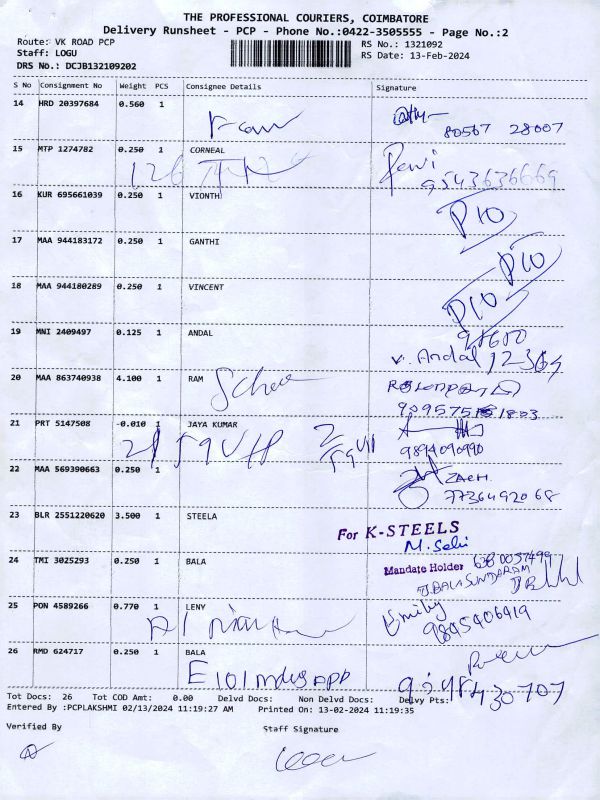 THE PROFESSIONAL COURIERS, COIMBATORE
Delivery Runsheet - PCP - Phone No.:0422-3505555 - Page No.:2
Route: VK ROAD PCP
RS No.: 1321092
Staff: LOGU
RS Date: 13-Feb-2024
DRS No.: DCJB132109202
S No Consignment No Weight PCS Consignee Details Signature
14 HRD 20397684 0.560 1
80567 28007
15 MTP 1274782 0.250 1 CORNEAL
Revi
9543636669
16 KUR 695661039 0.250 1 VIONTH
P10
17 MAA 944183172 0.250 1 GANTHI
P10
18 MAA 944180289 0.250 1 VINCENT
P10
19 MNI 2409497 0.125 1 ANDAL
98650
V. Andal 12364
20 MAA 863740938 4.100 1 RAM
21 PRT 5147508 -0.010 1 JAYA KUMAR
9894090990
22 MAA 569390663 0.250 1
ZACH.
7736492068
23 BLR 2551220620 3.500 1 STEELA
For K-STEELS
M. Selvi
24 TMI 3025293 0.250 1 BALA
Mandate Holder
J. BALA SUNDARAM
25 PON 4589266 0.770 1 LENY
9845406419
26 RMD 624717 0.250 1 BALA
E 101
Tot Docs: 26 Tot COD Amt: 0.00 Delvd Docs: Non Delvd Docs: Delvy Pts:
Entered By :PCPLAKSHMI 02/13/2024 11:19:27 AM Printed On: 13-02-2024 11:19:35
Verified By Staff Signature